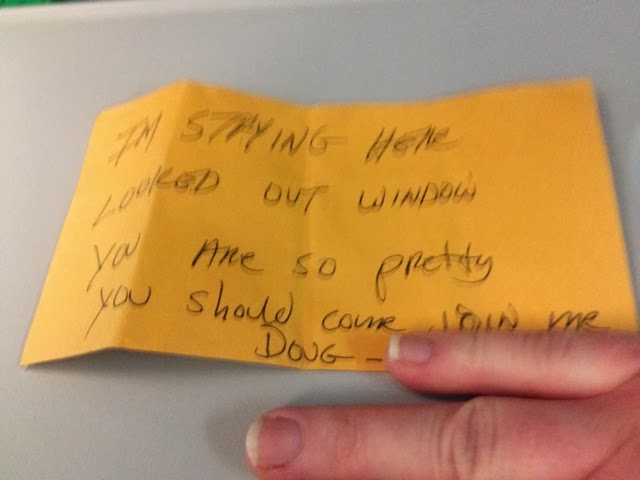 I'M STAYING HERE
LOOKED OUT WINDOW
YOU ARE SO pretty
YOU should come JOIN me
DOUG -